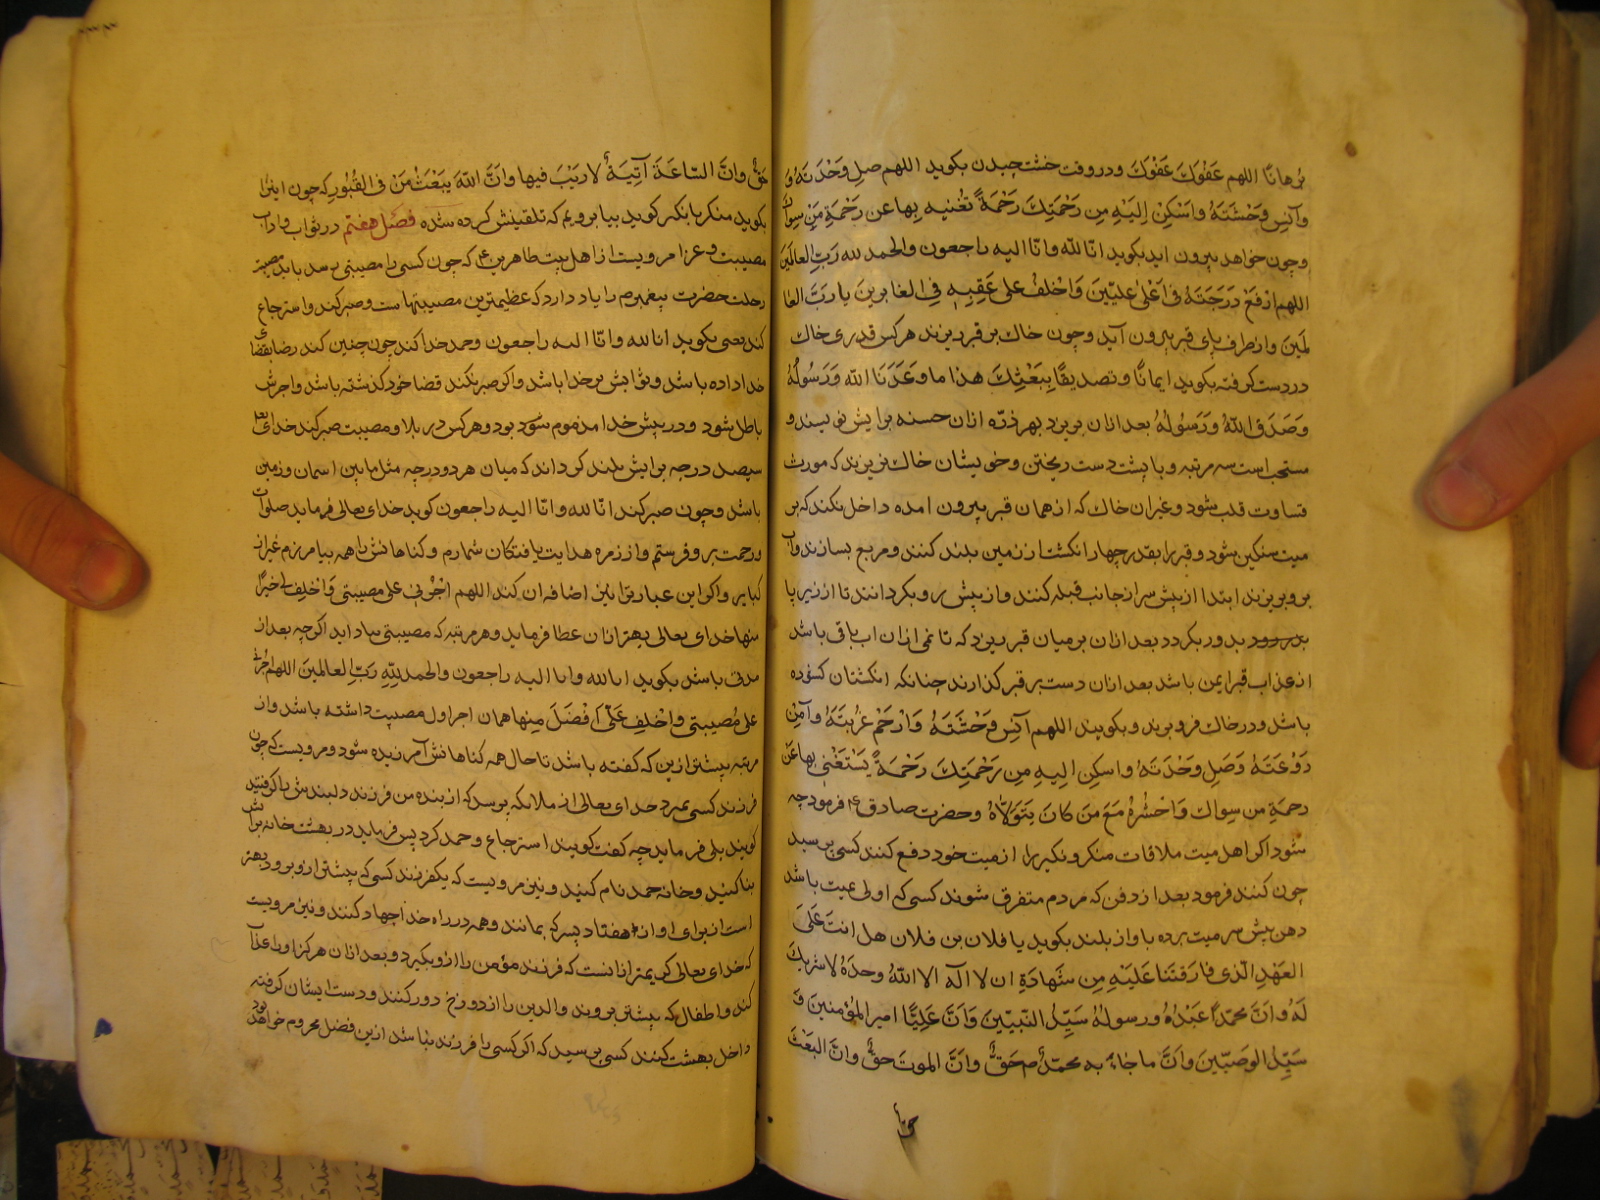 برهانا اللهم عَفْوَكَ عَفْوَكَ و در وقت خشت چیدن بکوید اللهم صلِ وَحْدَتَهُ وَ
وآنِس وَحْشَتَهُ واَسْکِنْ اِلَیْهِ مِن رَحْمَتِكَ رَحْمَةً تُغْنیهِ بِها عن رَحْمَةِ مَنْ سِواك
وچون خواهد بیرون اید بکوید انّا للّه وانّا الیه راجعون والحمد لله رَبِّ العالَمین
اللهم ارْفَعْ دَرَجَتَهُ فی اَعْلی عِلّیّینَ وَاخْلُفْ علی عَقِبِهِ فِی الغابرینَ یا رَبَّ العا
لَمینَ واز طرف پای قبر بیرون آید وچون خاك بر قبر ریزند هر کس قدری خاك
در دست کرفته بکوید ایمانًا وتصدیقًا بِبَعْثِكَ هذا ما وَعَدَنَا اللّه وَرَسُولُهُ
وَصَدَقَ اللّهُ وَرَسُولُهُ بعد ازان بریزد بهر ذرّه ازان حسنه برایش نویسند و
مستحب است سه مرتبه و با پشت دست ریختن و خویشان خاك نریزند که مورث
قساوت قلب شود و غیر ان خاك که از همان قبر بیرون امده داخل نکنند که بر
میت سنکین شود و قبر را بقدر چهار انکشت از زمین بلند کنند و مربع بسازند واب
برو بریزند ابتدا از پیش سر از جانب قبله کنند و از پیش رو بکردانند تا از زیر پا
بدور بکردد بعد ازان بر میان قبر ریزد که تا نمی ازان اب باقی باشد
از عذاب قبر ایمن باشد بعد ازان دست بر قبر کذارند چنانکه انکشتان کشوده
باشد ودر خاك فرو برند و بکویند اللهم آنِس وَحْشَتَهُ وَارْحَمْ غُرْبَتَهُ وآمِنْ
رَوْعَتَهُ وَصَلِ وَحْدَتَهُ واسکِن اِلیهِ مِن رَحْمَتِكَ رَحْمَةً یَسْتَغْنی بها عَنْ
رحمةِ من سِواك وَاحْشُرْهُ مَعَ مَن کانَ یَتَوَلّاهُ وحضرت صادق ع فرمود چه
شود اکر اهل میت ملاقات منکر و نکیر را از میت خود دفع کنند کسی پرسید
چون کنند فرمود بعد از دفن که مردم متفرق شوند کسی که اولی بمیت باشد
دهن پیش سر میت برده باواز بلند بکوید یا فلان بن فلان هل انتَ عَلَی
العَهْدِ الّذی فارَقْتَنا عَلَیْهِ مِن شَهادَةِ ان لا اِلٓهَ الا اللّهُ وحدَهُ لا شَریكَ
لَهُ وَانَّ محمّدًا عَبْدُهُ ورسولُهُ سَیِّدُ النّبیّینَ وَاَنَّ عَلِیًّا امیرُ المُؤمنینَ وَ
سَیِّدُ الوَصیّینَ واَنَّ ما جاءَ به محمّدٌ ص حَقٌّ وَاَنَّ الموتَ حقٌّ وانَّ البَعْثَ
حَقٌّ وَانَّ السّاعَةَ آتِیَةٌ لا رَیْبَ فیها وَانَّ اللّهَ یَبْعَثُ مَنْ فی القُبُورِ که چون اینرا
بکوید منکر بانکیر کوید بیا برویم که تلقینش کرده شده فصل هفتم در ثواب و اداب
مصیبت و عزا مرویست از اهل بیت طاهرین ع که چون کسی را مصیبتی رسد باید مصیبة
رحلت حضرت پیغمبر ص را یاد دارد که عظیمترین مصیبتهاست وصبر کند واسترجاع
کند یعنی بکوید انا لله وانّا الیه راجعون وحمد خدا کند چون چنین کند رضا بقضای
خدا داده باشد و ثوابش بر خدا باشد و اکر صبر نکند قضا خود کذشته باشد واجرش
باطل شود و در پیش خدا مذموم شود بود وهر کس در بلا ومصیبت صبر کند خدای تعا
سیصد درجه برایش بلند کرداند که میان هر دو درجه مثل مابین اسمان وزمین
باشد وچون صبر کند انّا لله وانّا الیه راجعون کوید خدای تعالی فرماید صلوات
ورحمت برو فرستم واز زمره هدایت یافتکان شمارم وکناهانش را همه بیامرزم غیر از
کبایر واکر این عبارترا نیز اضافه ان کند اللهم اجُرْنی علی مصیبتی وَاخْلِف لی خیرًا
منها خدای تعالی بهتر ازان عطا فرماید وهر مرتبه که مصیبتی بیاد اید اکرچه بعد از
مدتی باشد بکوید انا لله وانا الیه راجعون والحمد للّهِ رَبِّ العالمینَ اللهم اجُرْنی
علی مُصیبتی واخْلِف عَلَیَّ اَفْضَلَ مِنها همان اجر اول مصیبت داشته باشد واز
مرتبه پیشتر ازین که کفته باشد تا حال همه کناهانش آمرزیده شود ومرویست که چون
فرزند کسی بمیرد خدای تعالی از ملائکه پرسد که از بنده من فرزند دلبندش را کرفتید
کویند بلی فرماید چه کفت کویند استرجاع وحمد کرد پس فرماید در بهشت خانه برایش
بنا کنید وخانه حمد نام کنید ونیز مرویست که یکفرزند کسی که پیشتر ازو برود بهتر
است از برای او از هفتاد پسر که بمانند وهمه در راه خدا جهاد کنند ونیز مرویست
که خدای تعالی کریمتر ازانست که فرزند مؤمن را ازو بکیرد و بعد ازان هرکز او را عذاب
کند و اطفال که پیشتر بروند والدین را از دوزخ دور کنند ودست ایشان کرفته
داخل بهشت کنند کسی پرسید که اکر کسی را فرزند نباشد ازین فضل محروم خواهد بود
حق